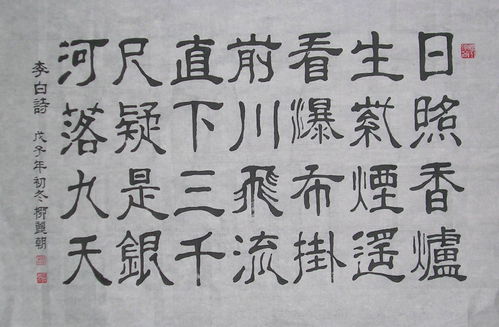 日照香爐
生紫煙遙
看瀑布掛
前川飛流
直下三千
尺疑是銀
河落九天
李白詩 戊子年初冬